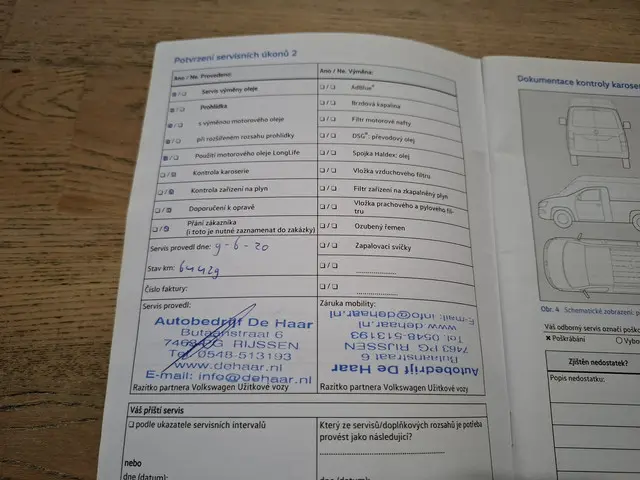 Potvrzení servisních úkonů 2
Ano / Ne. Provedení:
Servis výměny oleje
Prohlídka
s výměnou motorového oleje
při rozšířeném rozsahu prohlídky
Použití motorového oleje LongLife
Kontrola karoserie
Kontrola zařízení na plyn
Doporučení k opravě
Přání zákazníka
(i toto je nutné zaznamenat do zakázky)
Servis provedl dne: 9-6-20
Stav km: 64429
Číslo faktury:
Servis provedl:
Autobedrijf De Haar
Butaanstraat 6
7463 PG RIJSSEN
Tel. 0548-513193
www.dehaar.nl
E-mail: info@dehaar.nl
Razítko partnera Volkswagen Užitkové vozy
Ano / Ne. Výměna:
AdBlue®
Brzdová kapalina
Filtr motorové nafty
DSG®: převodový olej
Spojka Haldex: olej
Vložka vzduchového filtru
Filtr zařízení na zkapalněný plyn
Vložka prachového a pylového fil-
tru
Ozubený řemen
Zapalovací svíčky
Záruka mobility:
Autobedrijf De Haar
Butaanstraat 6
7463 PG RIJSSEN
Tel. 0548-513193
www.dehaar.nl
E-mail: info@dehaar.nl
Razítko partnera Volkswagen Užitkové vozy
Váš příští servis
podle ukazatele servisních intervalů
nebo
dne (datum):
Který ze servisů/doplňkových rozsahů je potřeba
provést jako následující?
dne (datum):
Dokumentace kontroly karoser
Obr. 4 Schematické zobrazení: p
Váš odborný servis označí poško
Poškrábání
Zjištěn nedostatek?
Popis nedostatku: